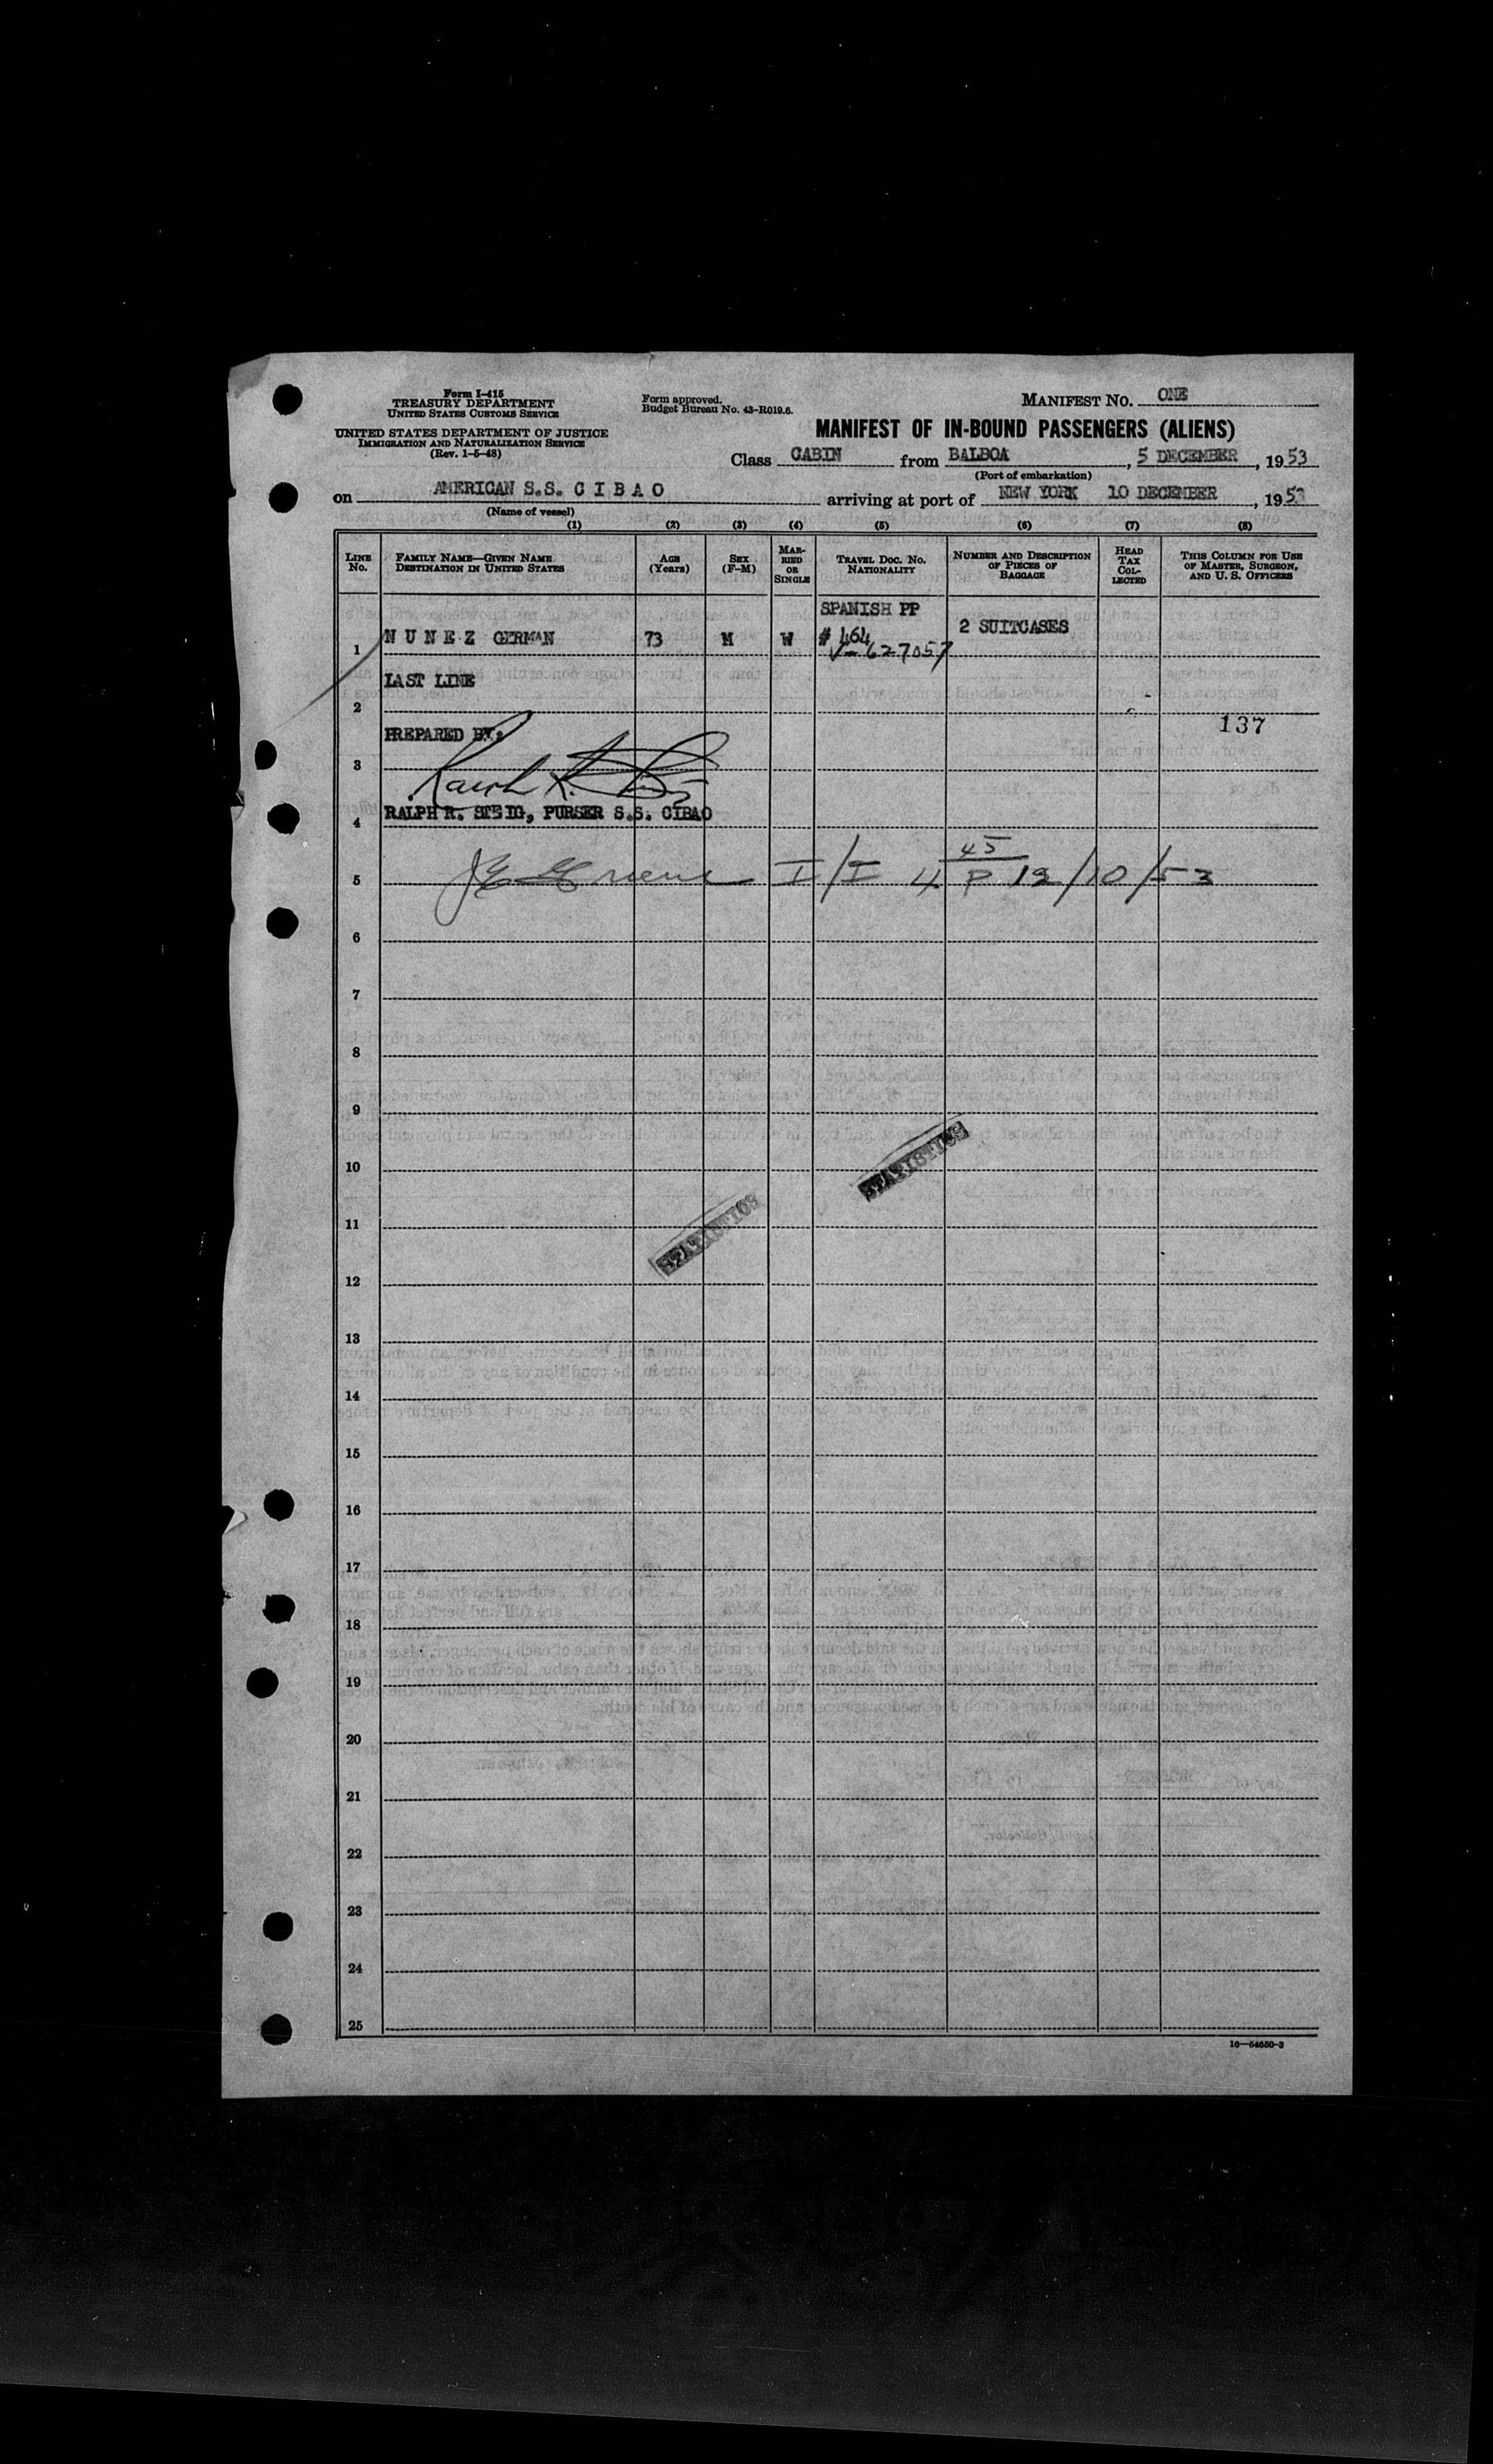 Form I-415
TREASURY DEPARTMENT
UNITED STATES CUSTOMS SERVICE
UNITED STATES DEPARTMENT OF JUSTICE
IMMIGRATION AND NATURALIZATION SERVICE
(Rev. 1-5-48)
Form approved.
Budget Bureau No. 43-R019.6.
MANIFEST NO. ONE
MANIFEST OF IN-BOUND PASSENGERS (ALIENS)
Class CABIN from BALBOA, 5 DECEMBER, 1953
(Port of embarkation)
on AMERICAN S.S. C I B A O arriving at port of NEW YORK 10 DECEMBER, 1953
(Name of vessel)
(1) (2) (3) (4) (5) (6) (7) (8)
LINE No. FAMILY NAME—GIVEN NAME DESTINATION IN UNITED STATES AGE (Years) SEX (F-M) MARRIED OR SINGLE TRAVEL DOC. NO. NATIONALITY NUMBER AND DESCRIPTION OF PIECES OF BAGGAGE HEAD TAX COLLECTED THIS COLUMN FOR USE OF MASTER, SURGEON, AND U. S. OFFICERS
SPANISH PP
1 N U N E Z GERMAN 73 M W # 464 2 SUITCASES
V-627057
LAST LINE
2
137
PREPARED BY:
3
RALPH R. STEIG, PURSER S.S. CIBAO
4
5 I/I 4 45 P 12/10/53
6
7
8
9
STATISTICS
10
11
STATISTICS
12
13
14
15
16
17
18
19
20
21
22
23
24
25
16—54650-3